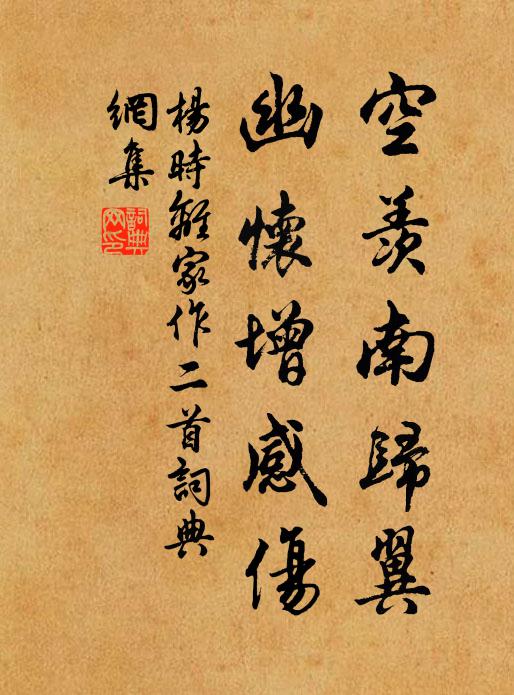 空羨南歸翼
幽懷增感傷
楊時離家作二首詞典
網集
詞典
網印